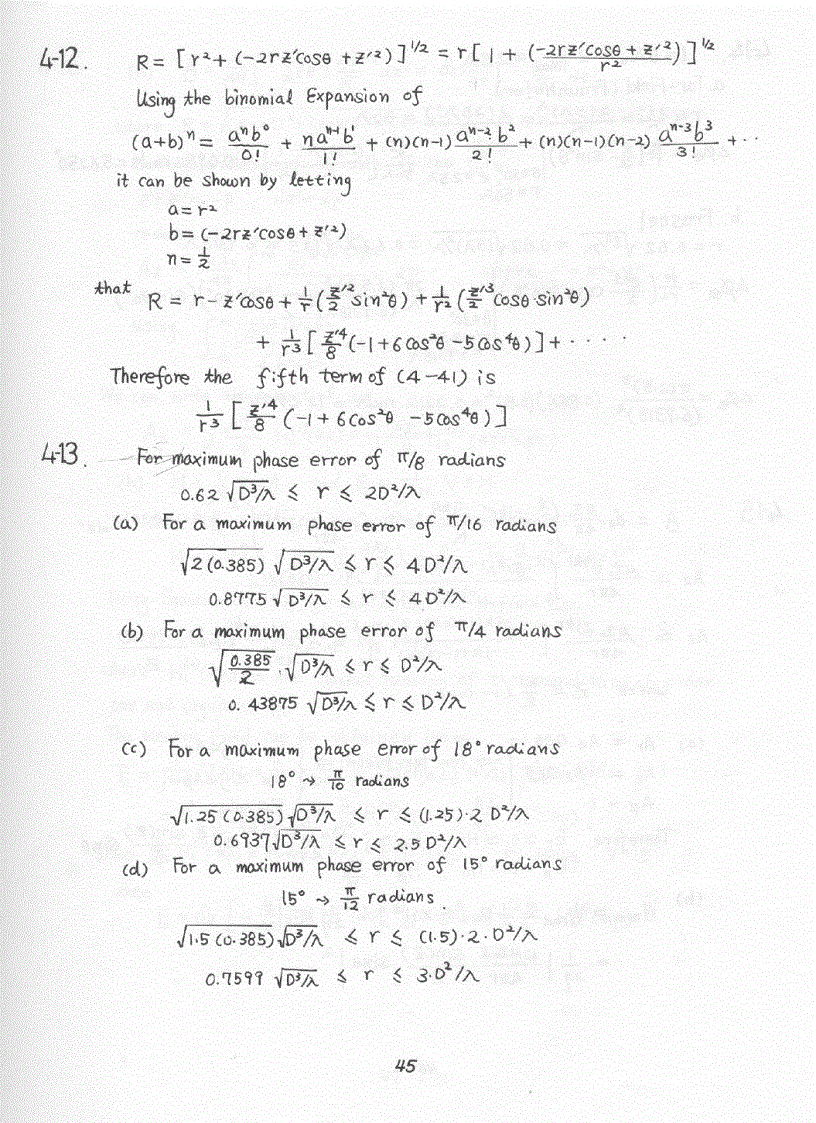 4-12. R = [r² + (-2rz'cosθ + z'²)]^1/2 = r[1 + (-2rz'cosθ + z'²)/r²]^1/2
Using the binomial Expansion of
(a+b)^n = a^n b^0/0! + n a^n-1 b^1/1! + (n)(n-1) a^n-2 b²/2! + (n)(n-1)(n-2) a^n-3 b³/3! + ··
it can be shown by letting
a = r²
b = (-2rz'cosθ + z'²)
n = 1/2
that R = r - z'cosθ + 1/r (z'²/2 sin²θ) + 1/r² (z'³/2 cosθ·sin²θ)
+ 1/r³ [z'⁴/8 (-1 + 6cos²θ - 5cos⁴θ)] + ····
Therefore the fifth term of (4-41) is
1/r³ [z'⁴/8 (-1 + 6cos²θ - 5cos⁴θ)]
4-13. For maximum phase error of π/8 radians
0.62 √D³/λ ≤ r ≤ 2D²/λ
(a) For a maximum phase error of π/16 radians
√2(0.385) √D³/λ ≤ r ≤ 4D²/λ
0.8775 √D³/λ ≤ r ≤ 4D²/λ
(b) For a maximum phase error of π/4 radians
√0.385/2 · √D³/λ ≤ r ≤ D²/λ
0.43875 √D³/λ ≤ r ≤ D²/λ
(c) For a maximum phase error of 18° radians
18° → π/10 radians
√1.25(0.385) √D³/λ ≤ r ≤ (1.25)·2 D²/λ
0.6937 √D³/λ ≤ r ≤ 2.5 D²/λ
(d) For a maximum phase error of 15° radians
15° → π/12 radians.
√1.5(0.385) √D³/λ ≤ r ≤ (1.5)·2·D²/λ
0.7599 √D³/λ ≤ r ≤ 3·D²/λ
45